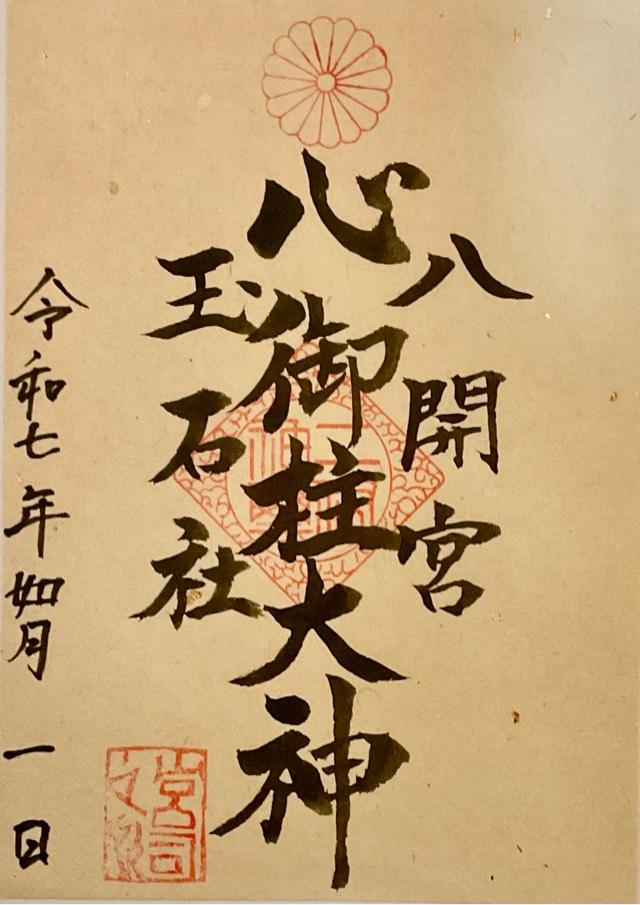 八開宮
心御柱大神
玉石社
令和七年如月一日